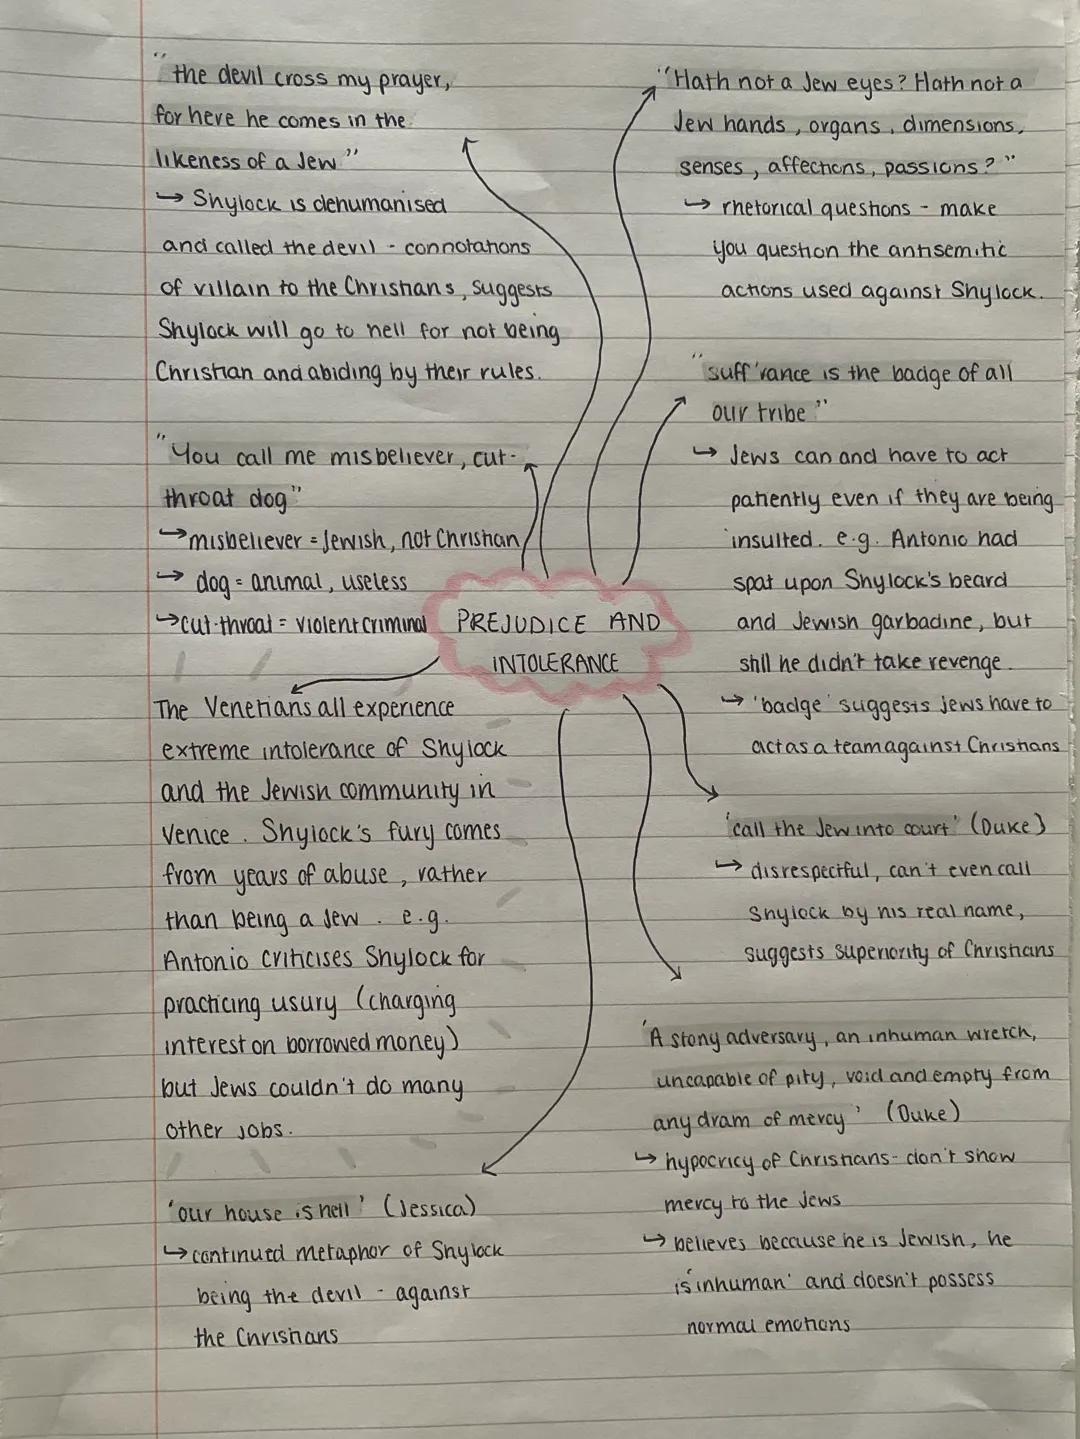 "the devil cross my prayer,
for here he comes in the
likeness of a Jew"
↳ Shylock is dehumanised
and called the devil - connotations
of villain to the Christians, suggests
Shylock will go to hell for not being
Christian and abiding by their rules.
"You call me misbeliever, cut-
throat dog"
↳ misbeliever = Jewish, not Christian
↳ dog = animal, useless
↳ cut-throat = violent criminal
PREJUDICE AND
INTOLERANCE
The Venetians all experience
extreme intolerance of Shylock
and the Jewish community in
Venice. Shylock's fury comes
from years of abuse, rather
than being a Jew. e.g.
Antonio criticises Shylock for
practicing usury (charging
interest on borrowed money)
but Jews couldn't do many
other jobs.
'our house is hell' (Jessica)
↳ continued metaphor of Shylock
being the devil - against
the Christians
"Hath not a Jew eyes? Hath not a
Jew hands, organs, dimensions,
senses, affections, passions?"
↳ rhetorical questions - make
you question the antisemitic
actions used against Shylock.
"suff'rance is the badge of all
our tribe"
↳ Jews can and have to act
patiently even if they are being
insulted. e.g. Antonio had
spat upon Shylock's beard
and Jewish garbadine, but
still he didn't take revenge.
↳ 'badge' suggests Jews have to
act as a team against Christians
'call the Jew into court' (Duke)
↳ disrespectful, can't even call
Shylock by his real name,
suggests superiority of Christians
'A stony adversary, an inhuman wretch,
uncapable of pity, void and empty from
any dram of mercy' (Duke)
↳ hypocricy of Christians - don't show
mercy to the Jews
↳ believes because he is Jewish, he
is 'inhuman' and doesn't possess
normal emotions